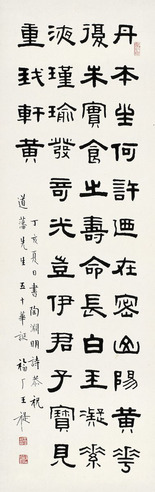 丹木生何許迺在密山陽黃華
復朱實食之壽命長白玉凝素
液瑾瑜發奇光豈伊君子寶見
重我軒黃
丁亥夏日書陶淵明詩恭祝
道藩先生五十華誕 福厂王禔